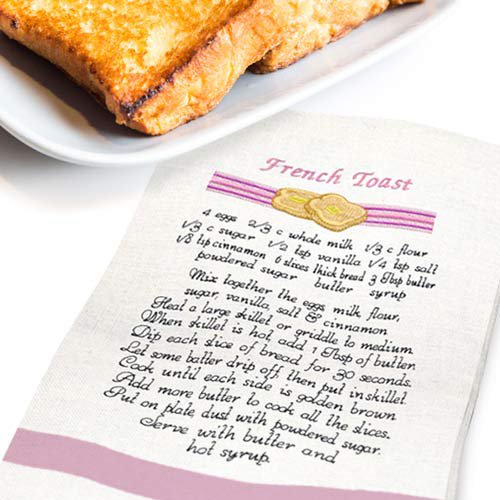 French Toast
4 eggs 2/3 c whole milk 1/3 c flour
1/3 c sugar 1/2 tsp vanilla 1/4 tsp salt
1/8 tsp cinnamon 6 slices thick bread 3 Tbsp butter
powdered sugar butter syrup
Mix together the eggs milk flour,
sugar, vanilla, salt & cinnamon
Heat a large skillet or griddle to medium
When skillet is hot add 1 Tbsp of butter.
Dip each slice of bread for 30 seconds.
Let some batter drip off, then put in skillet
Cook until each side is golden brown
Add more butter to cook all the slices.
Put on plate dust with powdered sugar.
Serve with butter and
hot syrup